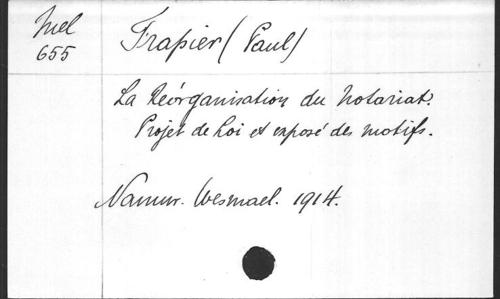 Mel
655
Frapier (Paul)
La Réorganisation du Notariat.
Projet de Loi et exposé des motifs.
Namur. Wesmael. 1914.